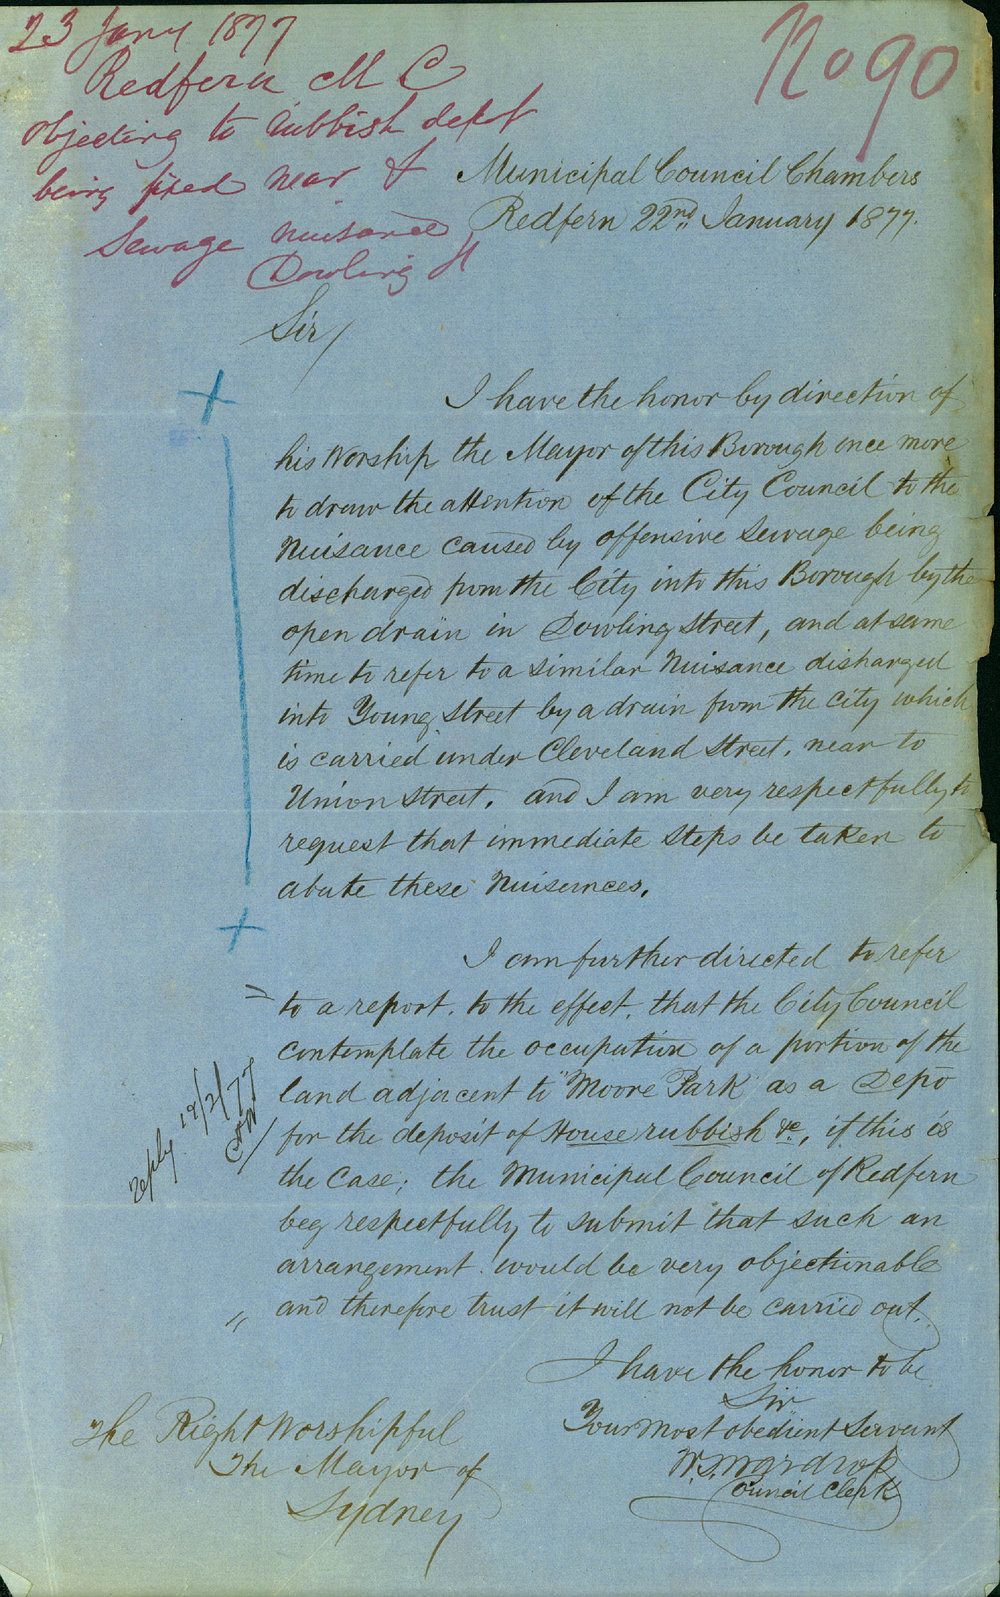 23 Jany 1877
Redfern M C
objecting to rubbish depot
being fixed near &
Sewage nuisance
Dowling St
No 90
Municipal Council Chambers
Redfern 22nd January 1877.
Sir/
I have the honor by direction of
his Worship the Mayor of this Borough once more
to draw the attention of the City Council to the
Nuisance caused by offensive Sewage being
discharged from the City into this Borough by the
open drain in Dowling Street, and at same
time to refer to a similar Nuisance disharged
into Young Street by a drain from the City which
is carried under Cleveland Street, near to
Union Street, and I am very respectfully to
request that immediate steps be taken to
abate these Nuisances.
I am further directed to refer
to a report, to the effect, that the City Council
contemplate the occupation of a portion of the
land adjacent to "Moore Park" as a Depō
for the deposit of House rubbish &c, if this is
the case; the Municipal Council of Redfern
beg respectfully to submit that such an
arrangement would be very objectionable
and therefore trust it will not be carried out.
reply 12/2/77
I have the honor to be
Sir
Your most obedient Servant
W.S. Wardrop
Council Clerk
The Right Worshipful
The Mayor of
Sydney